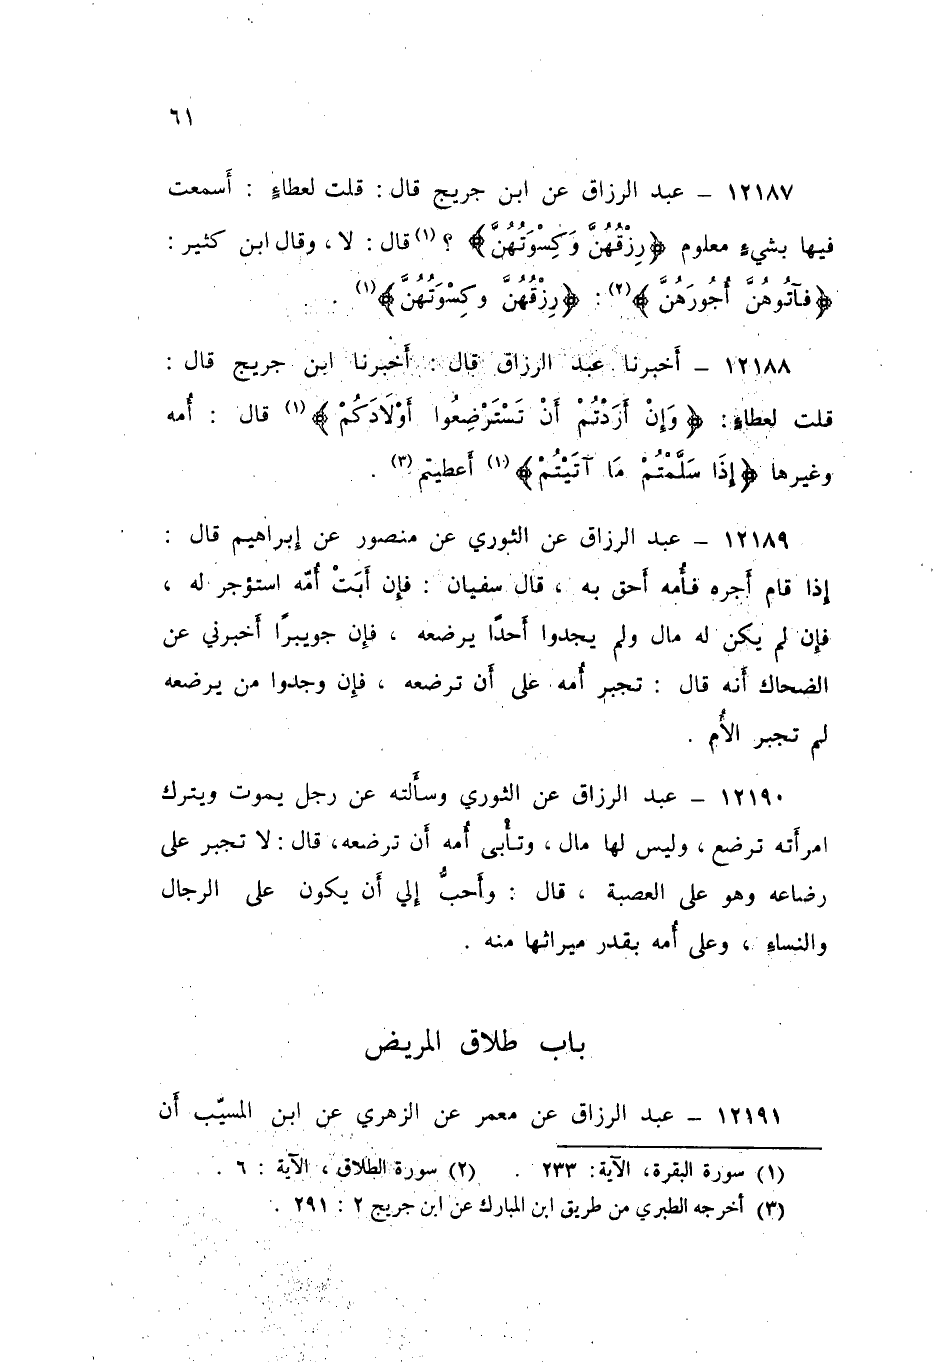 ٦١
١٢١٨٧ – عبد الرزاق عن ابن جريج قال : قلت لعطاءٍ : أَسمعت
فيها بشيءٍ معلوم ﴿رِزْقُهُنَّ وَكِسْوَتُهُنَّ﴾ ؟ (١) قال : لا ، وقال ابن كثير :
﴿فَآتُوهُنَّ أُجُورَهُنَّ﴾(٢) : ﴿رِزْقُهُنَّ وكِسْوَتُهُنَّ﴾(١) .
١٢١٨٨ – أَخبرنا عبد الرزاق قال : أَخبرنا ابن جريج قال :
قلت لعطاءٍ : ﴿وَإِنْ أَرَدْتُمْ أَنْ تَسْتَرْضِعُوا أَوْلَادَكُمْ﴾(١) قال : أُمه
وغيرها ﴿إِذَا سَلَّمْتُمْ مَا آتَيْتُمْ﴾(١) أَعطيتم(٣) .
١٢١٨٩ – عبد الرزاق عن الثوري عن منصور عن إبراهيم قال :
إذا قام أَجره فأُمه أَحق به ، قال سفيان : فإن أَبَتْ أُمّه استؤجر له ،
فإن لم يكن له مال ولم يجدوا أَحدًا يرضعه ، فإن جويبرًا أَخبرني عن
الضحاك أَنه قال : تجبر أُمه على أَن ترضعه ، فإن وجدوا من يرضعه
لم تجبر الأُم .
١٢١٩٠ – عبد الرزاق عن الثوري وسأَلته عن رجل يموت ويترك
امرأَته ترضع ، وليس لها مال ، وتأْبى أُمه أَن ترضعه ، قال : لا تجبر على
رضاعه وهو على العصبة ، قال : وأَحبُّ إلي أَن يكون على الرجال
والنساءِ ، وعلى أُمه بقدر ميراثها منه .
باب طلاق المريض
١٢١٩١ – عبد الرزاق عن معمر عن الزهري عن ابن المسيّب أَن
(١) سورة البقرة، الآية: ٢٣٣ . (٢) سورة الطلاق ، الآية : ٦ .
(٣) أخرجه الطبري من طريق ابن المبارك عن ابن جريج ٢ : ٢٩١ .